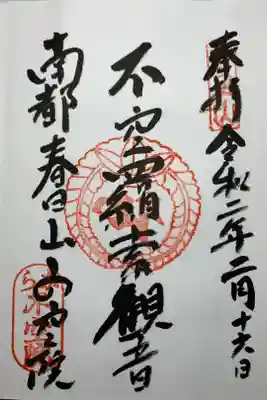 奉拝 令和二年二月十六日
不空羂索観音
南都春日山不空院